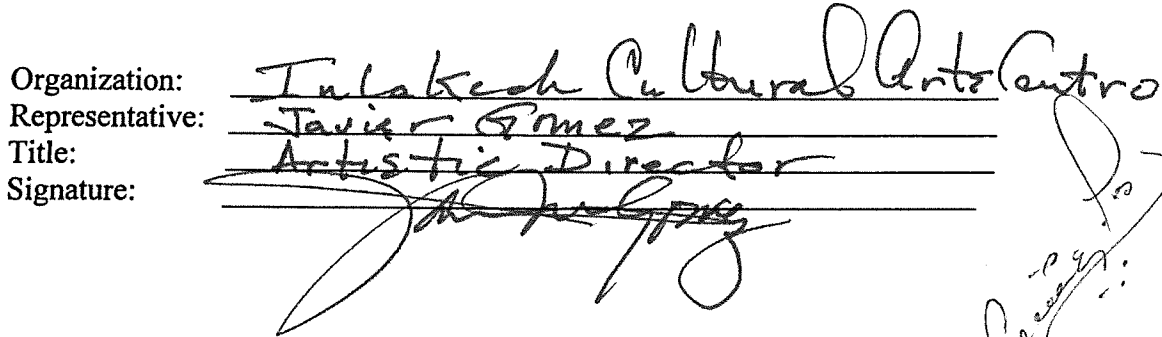 Organization: Inlakech Cultural Arts Centro
Representative: Javier Gomez
Title: Artistic Director
Signature: Javier Gomez